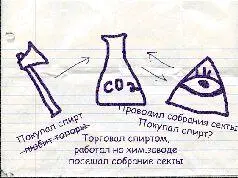 CO2
Покупал спирт
любит топоры
Проводил собрания секты
Покупал спирт?
Торговал спиртом,
работал на хим.заводе
посещал собрание секты